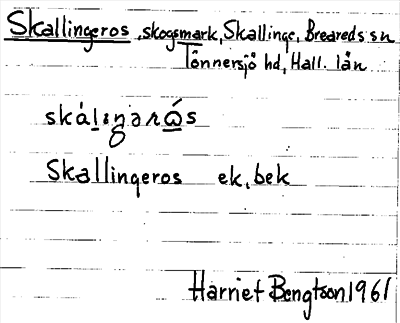 Skallingeros, skogsmark, Skallinge, Breareds sn
Tönnersjö hd, Hall. län
skáliŋərώ̲s
Skallingeros ek, bek
Harriet Bengtson 1961